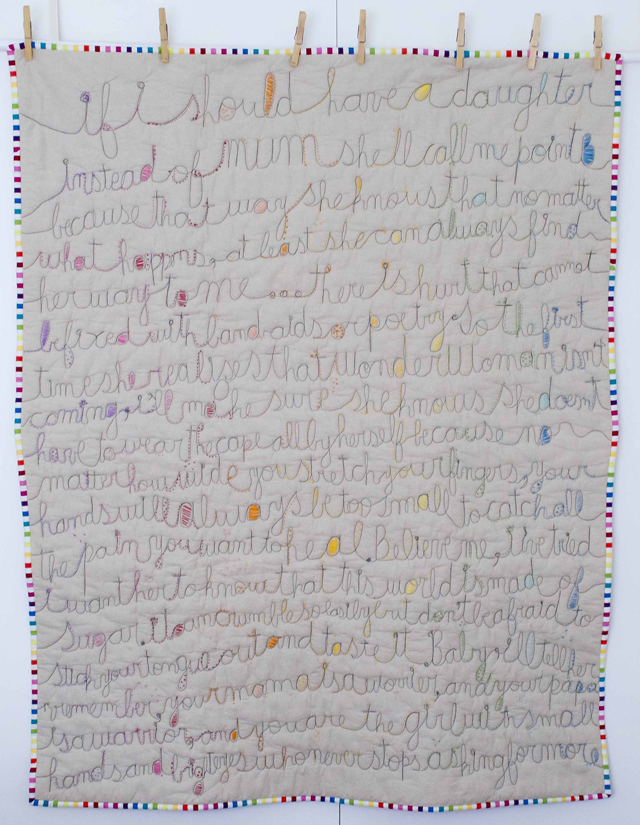 if i should have a daughter
instead of mum she'll call me point B
because that way she knows that no matter
what happens, at least she can always find
her way to me ... there is hurt that cannot
be fixed with band-aids or poetry. So the first
time she realizes that Wonder Woman isn't
coming, I'll make sure she knows she doesn't
have to wear the cape all by herself because no
matter how wide you stretch your fingers, your
hands will always be too small to catch all
the pain you want to heal. Believe me, I've tried
i want her to know that this world is made of
sugar. It can crumble so easily but don't be afraid to
stick your tongue out and taste it. Baby I'll tell her
remember your mama is a worrier, and your papa
is a warrior, and you are the girl with small
hands and big eyes who never stops asking for more